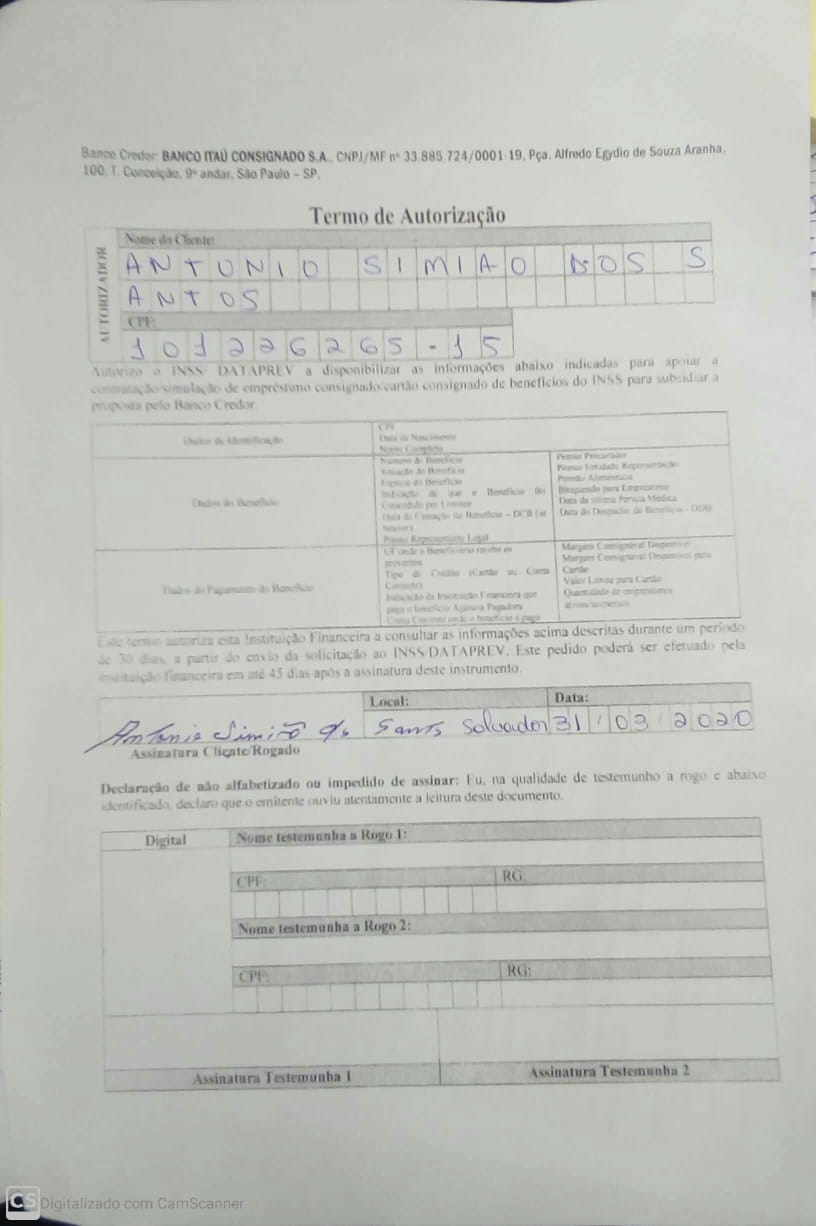 Banco Credor: BANCO ITAÚ CONSIGNADO S.A., CNPJ/MF nº 33.885.724/0001-19, Pça. Alfredo Egydio de Souza Aranha,
100, T. Conceição, 9º andar, São Paulo – SP.
Termo de Autorização
AUTORIZADOR
Nome do Cliente:
ANTONIO SIMIAO DOS S
ANTOS
CPF:
101226265-15
Autorizo o INSS/DATAPREV a disponibilizar as informações abaixo indicadas para apoiar a
contratação/simulação de empréstimo consignado/cartão consignado de benefícios do INSS para subsidiar a
proposta pelo Banco Credor.
Dados de Identificação
CPF
Data de Nascimento
Nome Completo
Dados do Benefício
Número do Benefício
Situação do Benefício
Espécie do Benefício
Indicação de que o Benefício foi
Concedido por Liminar
Data de Cessação do Benefício – DCB (se
houver)
Possui Representante Legal
Possui Procurador
Possui Entidade Representação
Pensão Alimentícia
Bloqueado para Empréstimo
Data da última Perícia Médica
Data do Despacho do Benefício - DDB
Dados do Pagamento do Benefício
UF onde o Beneficiário recebe os
proventos
Tipo de Crédito (Cartão ou Conta
Corrente)
Indicação da Instituição Financeira que
paga o benefício Agência Pagadora
Conta Corrente onde o benefício é pago
Margem Consignável Disponível
Margem Consignável Disponível para
Cartão
Valor Limite para Cartão
Quantidade de empréstimos
ativos/suspensos
Este termo autoriza esta Instituição Financeira a consultar as informações acima descritas durante um período
de 30 dias, a partir do envio da solicitação ao INSS/DATAPREV. Este pedido poderá ser efetuado pela
instituição financeira em até 45 dias após a assinatura deste instrumento.
Local: Data:
Antonio Simião ds Sants Salvador 31 03 2020
Assinatura Cliente/Rogado
Declaração de não alfabetizado ou impedido de assinar: Eu, na qualidade de testemunho a rogo e abaixo
identificado, declaro que o emitente ouviu atentamente a leitura deste documento.
Digital
Nome testemunha a Rogo 1:
CPF: RG:
Nome testemunha a Rogo 2:
CPF: RG:
Assinatura Testemunha 1 Assinatura Testemunha 2
CS Digitalizado com CamScanner